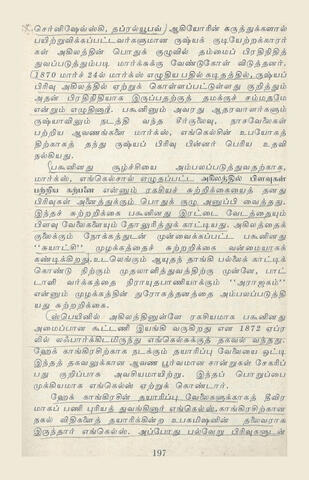 செர்னிஷேவ்ஸ்கி, தப்ரல்யூபவ்) ஆகியோரின் கருத்துக்களால்
பயிற்றுவிக்கப்பட்டவர்களுமான ருஷ்யக் குடியேற்றக்காரர்
கள் அகிலத்தின் பொதுக் குழுவில் தம்மைப் பிரதிநிதித்
துவப்படுத்தும்படி மார்க்சுக்கு வேண்டுகோள் விடுத்தனர்.
1870 மார்ச் 24ல் மார்க்ஸ் எழுதிய பதில் கடிதத்தில், ருஷ்யப்
பிரிவு அகிலத்தில் ஏற்றுக் கொள்ளப்பட்டுள்ளது குறித்தும்
அதன் பிரதிநிதியாக இருப்பதற்குத் தமக்குச் சம்மதமே
என்றும் எழுதினார். பகூனினும் அவரது ஆதரவாளர்களும்
ருஷ்யாவிலும் நடத்தி வந்த சீர்குலைவு, நாசவேலைகள்
பற்றிய ஆவணங்களை மார்க்ஸ், எங்கெல்சின் உபயோகத்
திற்காகத் தந்து ருஷ்யப் பிரிவு பின்னர் பெரிய உதவி
நல்கியது.
பகூனினது சூழ்ச்சியை அம்பலப்படுத்துவதற்காக,
மார்க்ஸ், எங்கெல்சால் எழுதப்பட்ட அகிலத்தில் பிளவுகள்
பற்றிய கற்பனை என்னும் ரகசியச் சுற்றறிக்கையைத் தனது
பிரிவுகள் அனைத்துக்கும் பொதுக் குழு அனுப்பி வைத்தது.
இந்தச் சுற்றறிக்கை பகூனினது இரட்டை வேடத்தையும்
பிளவு வேலைகளையும் தோலுரித்துக் காட்டியது. அகிலத்தைக்
குலைக்கும் நோக்கத்துடன் முன்வைக்கப்பட்ட பகூனினது
"சுயாட்சி" முழக்கத்தைச் சுற்றறிக்கை வன்மையாகக்
கண்டிக்கிறது. உடலெங்கும் ஆயுதந் தாங்கி பல்லைக் காட்டிக்
கொண்டு நிற்கும் முதலாளித்துவத்திற்கு முன்னே, பாட்
டாளி வர்க்கத்தை நிராயுதபாணியாக்கும் "அராஜகம்"
என்னும் முழக்கத்தின் துரோகத்தனத்தை அம்பலப்படுத்தி
யது சுற்றறிக்கை.
ஸ்பெயினில் அகிலத்தினுள்ளே ரகசியமாக பகூனினது
அமைப்பான கூட்டணி இயங்கி வருகிறது என 1872 ஏப்ர
லில் லஃபார்க்கிடமிருந்து எங்கெல்சுக்குத் தகவல் வந்தது.
ஹேக் காங்கிரசிற்காக நடக்கும் தயாரிப்பு வேலையை ஒட்டி
இந்தத் தகவலுக்கான ஆவண பூர்வமான சான்றுகள் சேகரிப்
பது குறிப்பாக அவசியமாயிற்று. இந்தப் பொறுப்பை
முக்கியமாக எங்கெல்ஸ் ஏற்றுக் கொண்டார்.
ஹேக் காங்கிரசின் தயாரிப்பு வேலைகளுக்காகத் தீவிர
மாகப் பணி புரியத் துவங்கினார் எங்கெல்ஸ். காங்கிரசிற்கான
நகல் விதிகளைத் தயாரிக்கின்ற உபகமிஷனின் தலைவராக
இருந்தார் எங்கெல்ஸ். அப்போது பல்வேறு பிரிவுகளுடன்
197